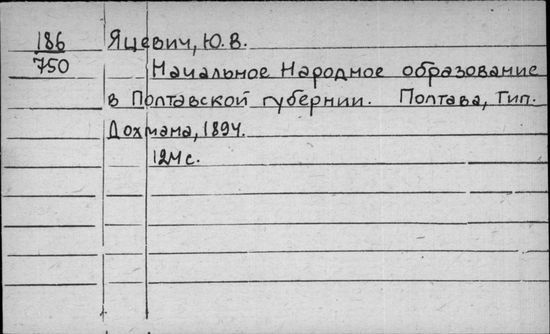 186 Яцевич, Ю. В.
750 Начальное Народное образование
в Полтавской губернии. Полтава, Тип.
Дохмана, 1894.
124 с.